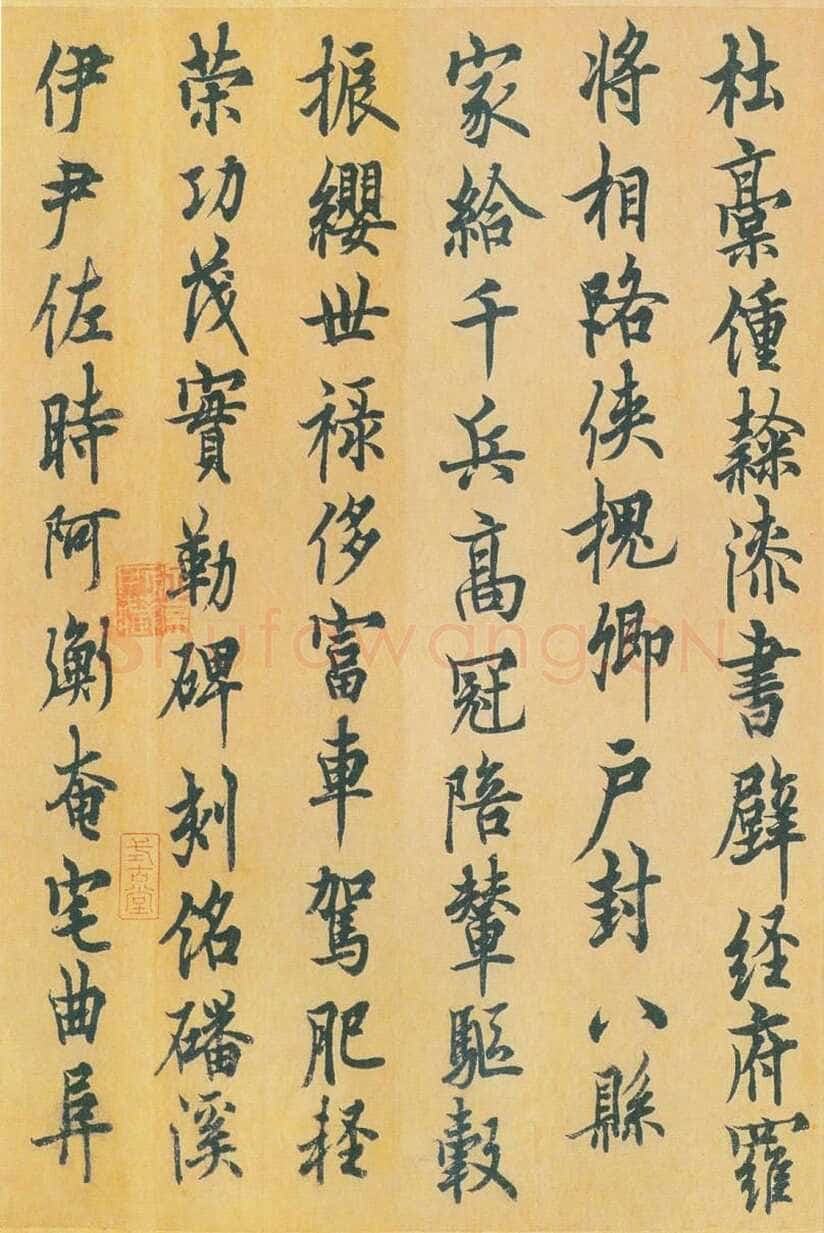 杜稾鍾隸漆書壁経府羅
将相路俠槐卿户封八縣
家給千兵高冠陪輦驅轂
振纓世禄侈富車駕肥軽
荣功茂實勒碑刻銘磻溪
伊尹佐時阿衡奄宅曲阜
式古堂
shufawang.CN